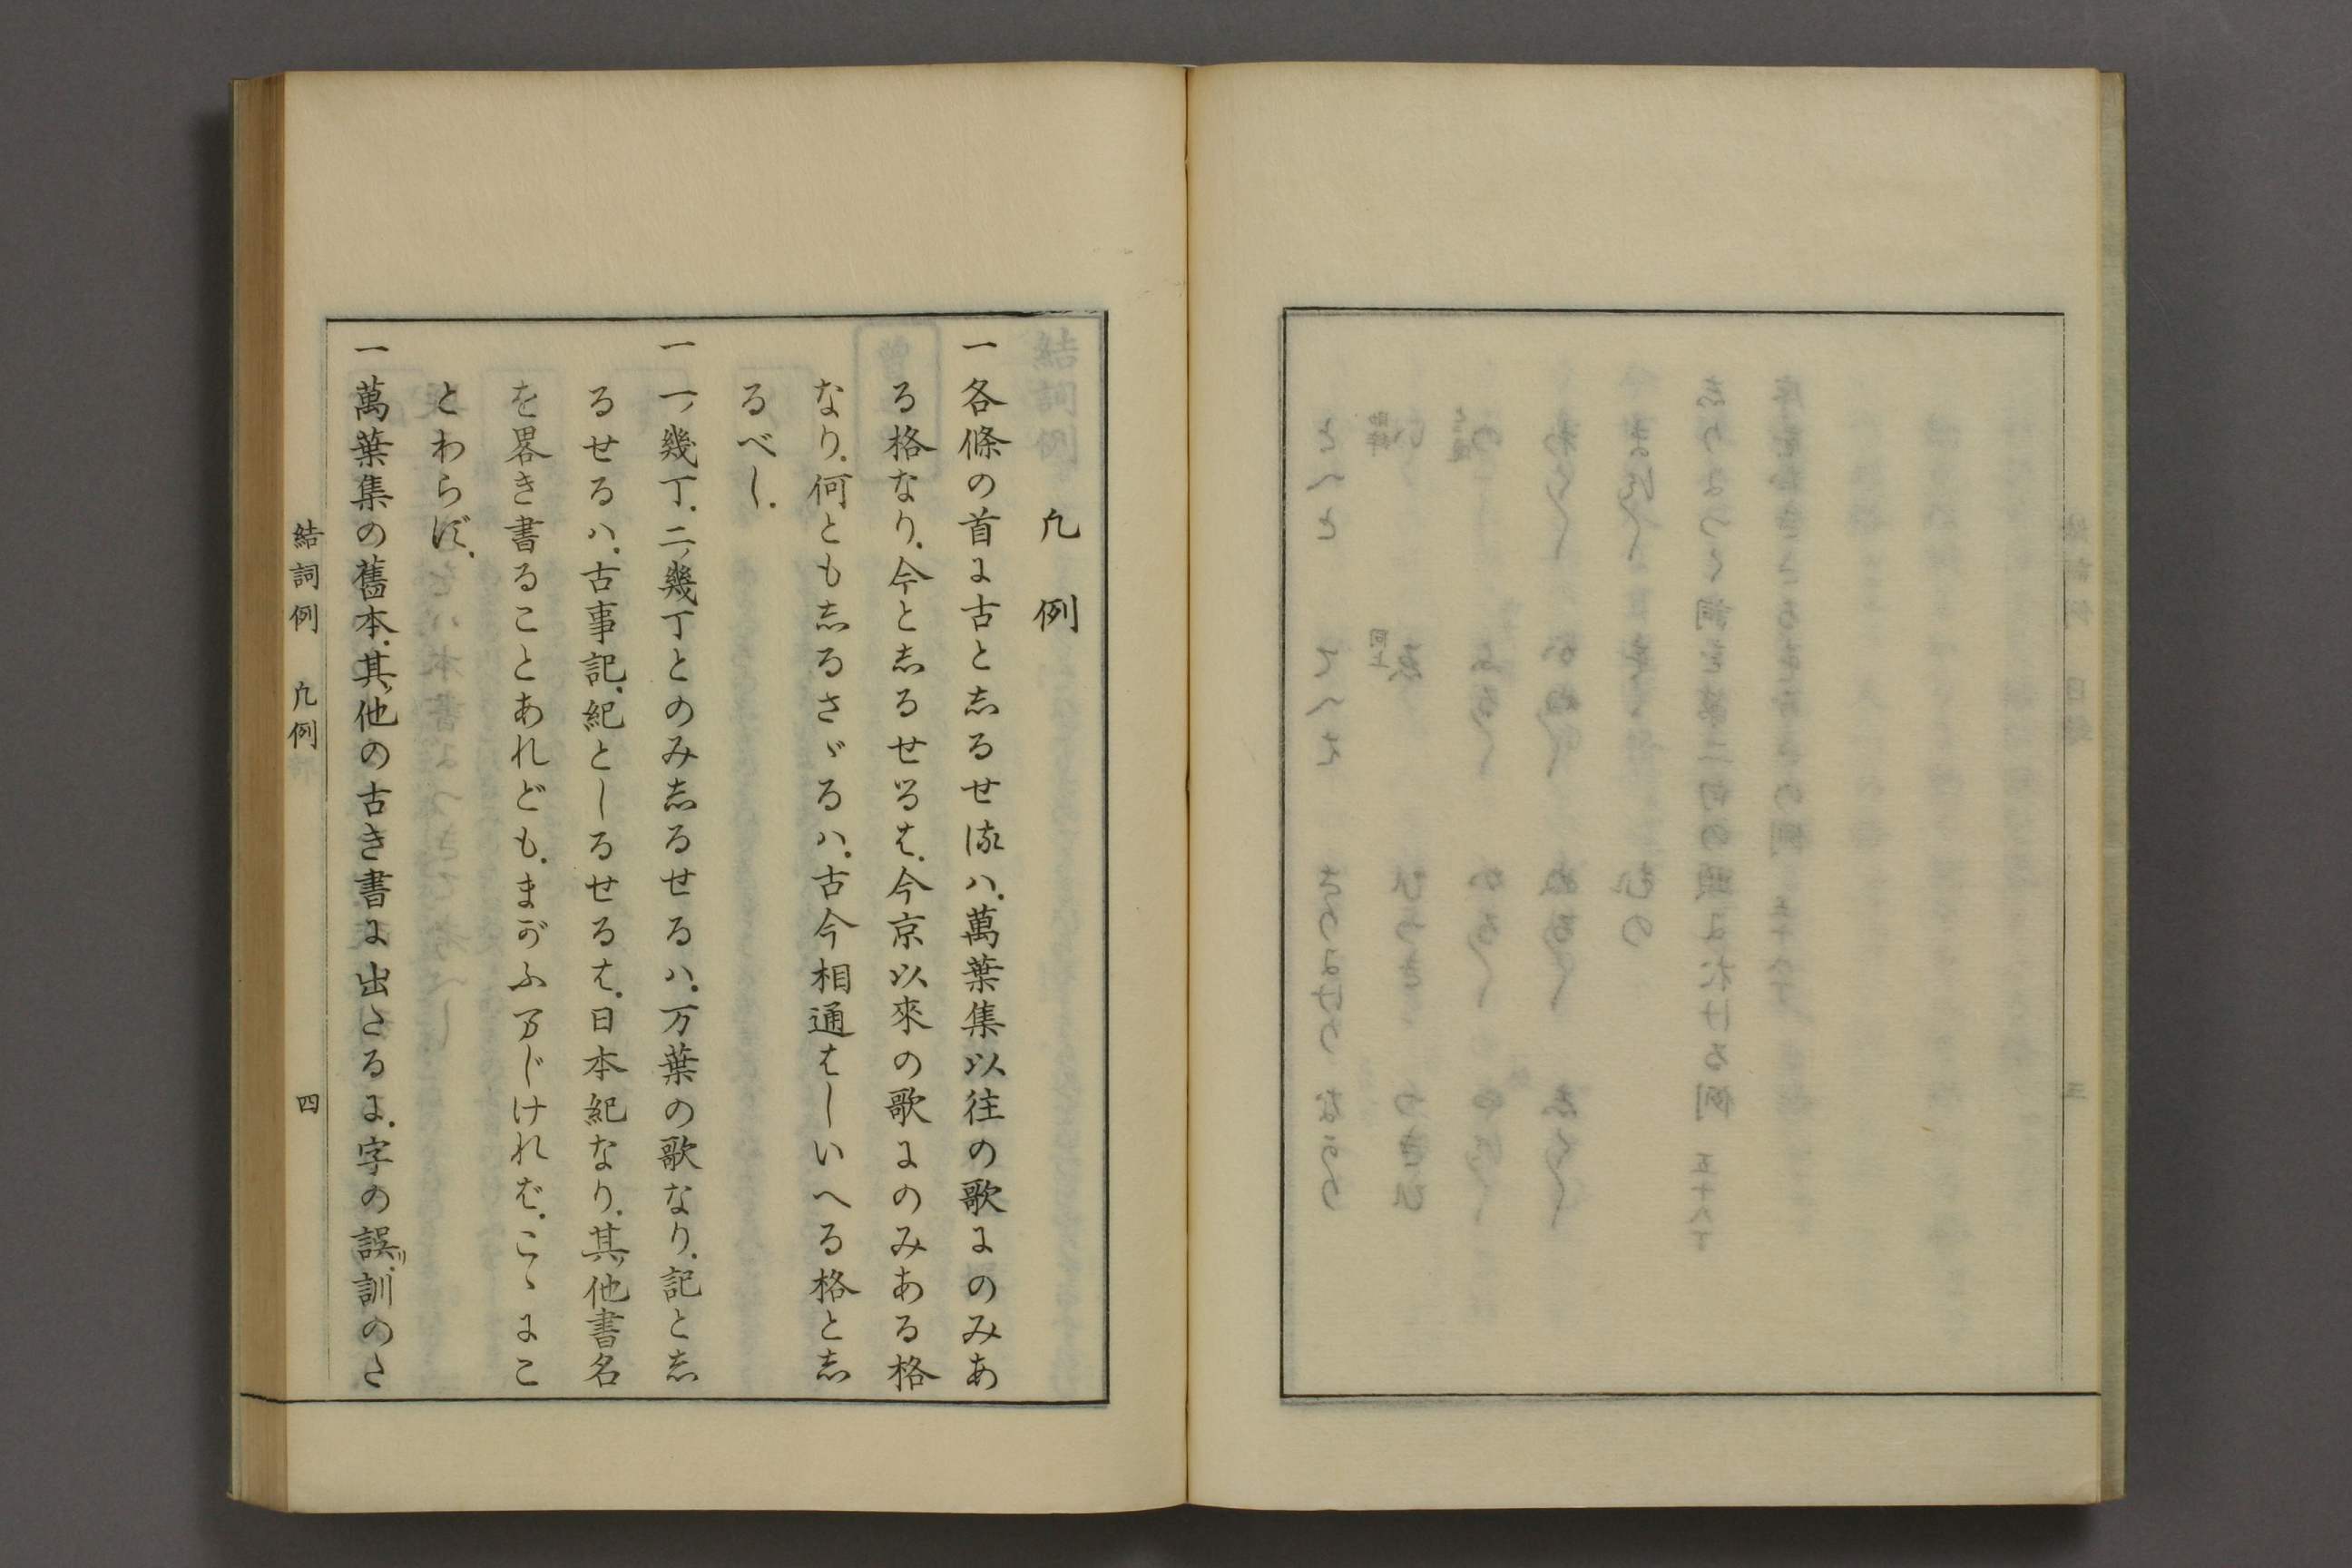 凡例
一各條の首に古と志るせるハ.萬葉集以往の歌にのみあ
る格なり.今と志るせるは.今京以來の歌にのみある格
なり.何とも志るさゞるハ.古今相通はしいへる格と志
るべし.
一一ノ幾丁.二ノ幾丁とのみ志るせるハ.万葉の歌なり.記と志
るせるハ.古事記.紀としるせるは.日本紀なり.其ノ他書名
を畧き書ることあれども.まがふまじければ.こゝにこ
とわらず.
一萬葉集の舊本.其ノ他の古き書に出たるに.字の誤リ.訓のた
結詞例 凡例 四